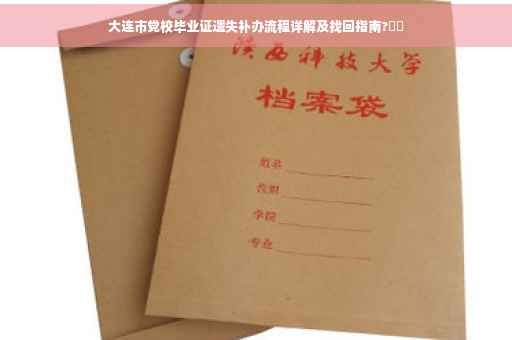 大连市党校毕业证遗失补办流程详解及找回指南?
陕西科技大学
档案袋
姓名
学院
专业